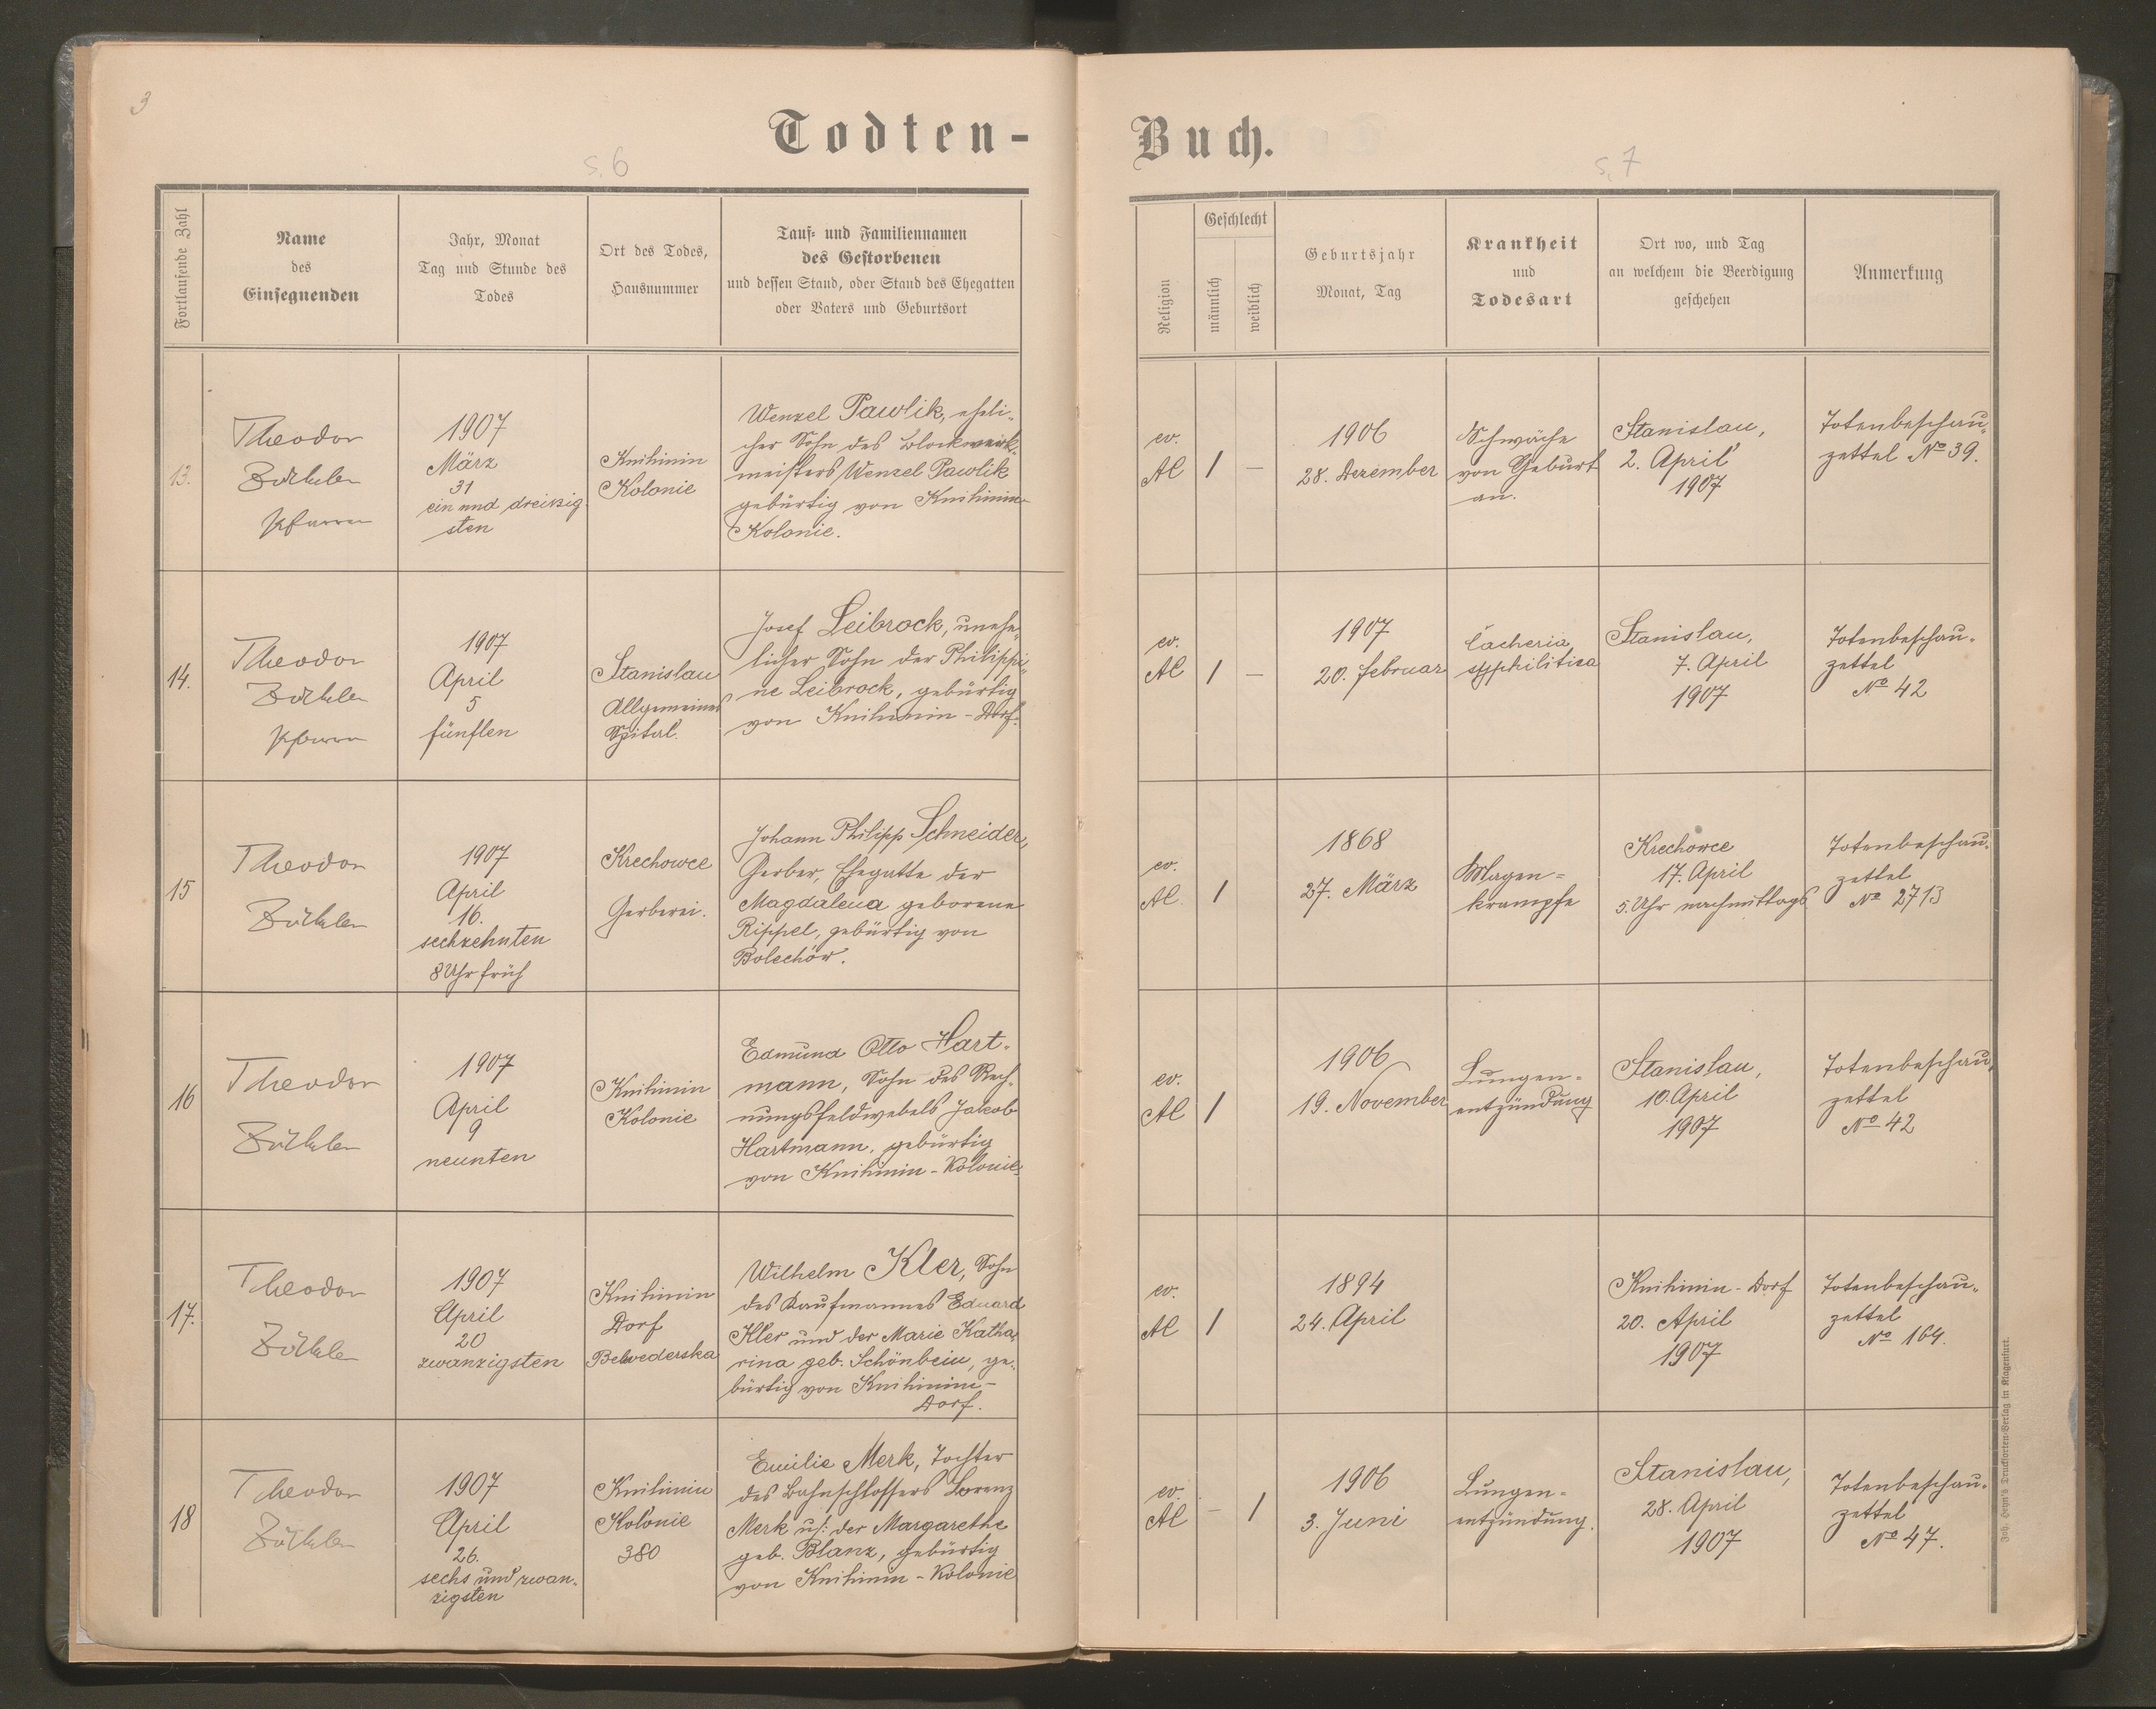 3
Todten-
Buch.
S. 6
S. 7
Fortlaufende Zahl
Name
des
Einsegnenden
Jahr, Monat
Tag und Stunde des
Todes
Ort des Todes,
Hausnummer
Tauf- und Familiennamen
des Gestorbenen
und dessen Stand, oder Stand des Ehegatten
oder Vaters und Geburtsort
Religion
Geschlecht
männlich
weiblich
Geburtsjahr
Monat, Tag
Krankheit
und
Todesart
Ort wo, und Tag
an welchem die Beerdigung
geschehen
Anmerkung
13.
Theodor
Zöckler
Pfarrer
1907
März
31
ein und dreizig
sten
Knihinin
Kolonie
Wenzel Pawlik, eheli-
cher Sohn des Blockwerk-
meisters Wenzel Pawlik
gebürtig von Knihinin-
Kolonie.
ev.
AC
1
—
1906
28. Dezember
Schwäche
von Geburt
an.
Stanislau,
2. April
1907
Totenbeschau-
zettel No 39.
14.
Theodor
Zöckler
Pfarrer
1907
April
5
fünften
Stanislau
Allgemeines
Spital.
Josef Leibrock, unehe-
licher Sohn der Philippi-
ne Leibrock, gebürtig
von Knihinin - Dorf.
ev.
AC
1
—
1907
20. februar
Cacheria
syphilitica
Stanislau,
7. April
1907
Totenbeschau-
zettel
No 42
15
Theodor
Zöckler
1907
April
16.
sechzehnten
8 Uhr früh
Krechowce
Gerberei.
Johann Philipp Schneider,
Gerber, Ehegatte der
Magdalena geborene
Rippel, gebürtig von
Bolechów.
ev.
AC.
1
1868
27. März
Magen=
krampfe
Krechowce
17. April
5. Uhr nachmittags
Totenbeschau-
zettel
No 2713
16
Theodor
Zöckler
1907
April
9
neunten
Knihinin
Kolonie
Edmund Otto Hart-
mann, Sohn des Rech-
nungsfeldwebels Jakob
Hartmann, gebürtig
von Knihinin - Kolonie.
ev.
AC
1
1906
19. November
Lungen=
entzündung
Stanislau,
10. April
1907
Totenbeschau-
zettel
No 42
17.
Theodor
Zöckler
1907
April
20
zwanzigsten
Knihinin
Dorf
Belwederska
Wilhelm Kler, Sohn
des Kaufmannes Eduard
Kler und der Marie Katha-
rina geb. Schönbein, ge-
bürtig von Knihinin-
Dorf.
ev.
AC
1
1894
24. April
Knihinin - Dorf
20. April
1907
Totenbeschau-
zettel
No 164.
18
Theodor
Zöckler
1907
April
26.
sechs und zwan-
zigsten
Knihinin
Kolonie
380
Emilie Merk, Tochter
des Bahnschlossers Lorenz
Merk u/: der Margarethe
geb. Blanz, gebürtig
von Knihinin - Kolonie
ev.
AC
-
1
1906
3. Juni
Lungen=
entzündung.
Stanislau,
28. April
1907
Totenbeschau-
zettel
No 47.
Joh. Heyn's Drucksorten-Verlag in Klagenfurt.